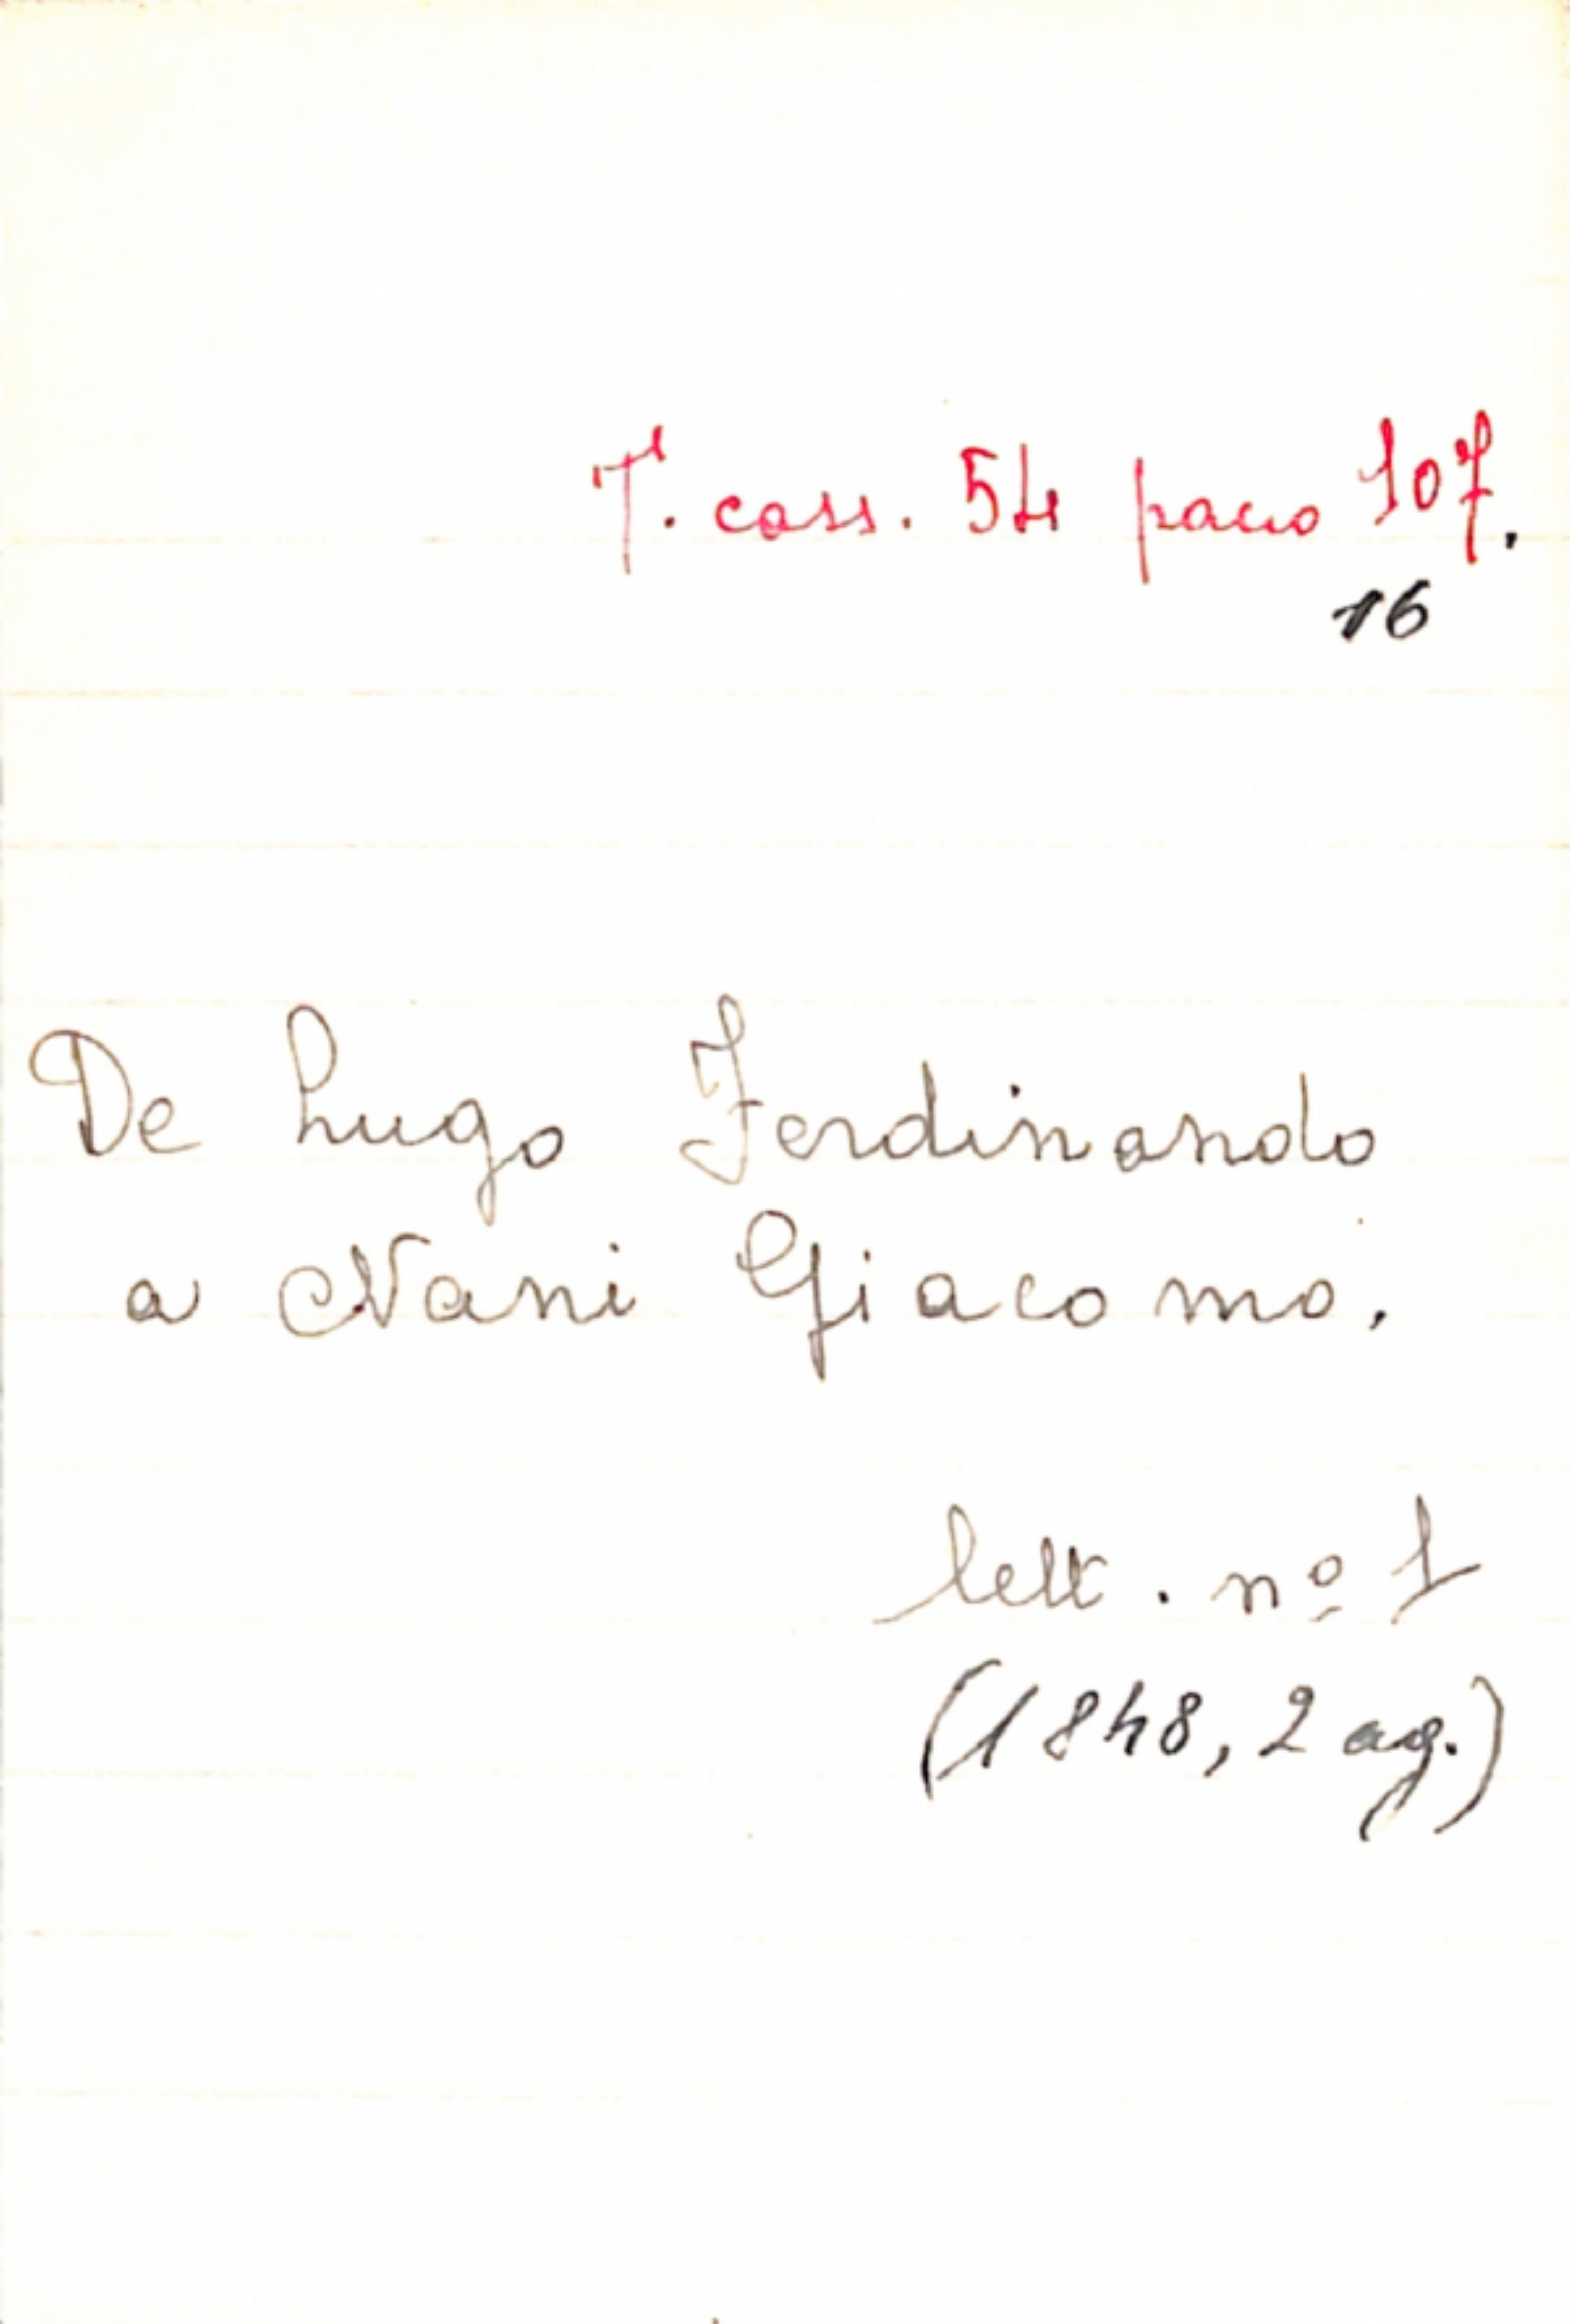 T. cass. 54 pacco 107.
16
De Lugo Ferdinando
a Nani Giacomo.
lett. nº 1
(1848, 2 ag.)